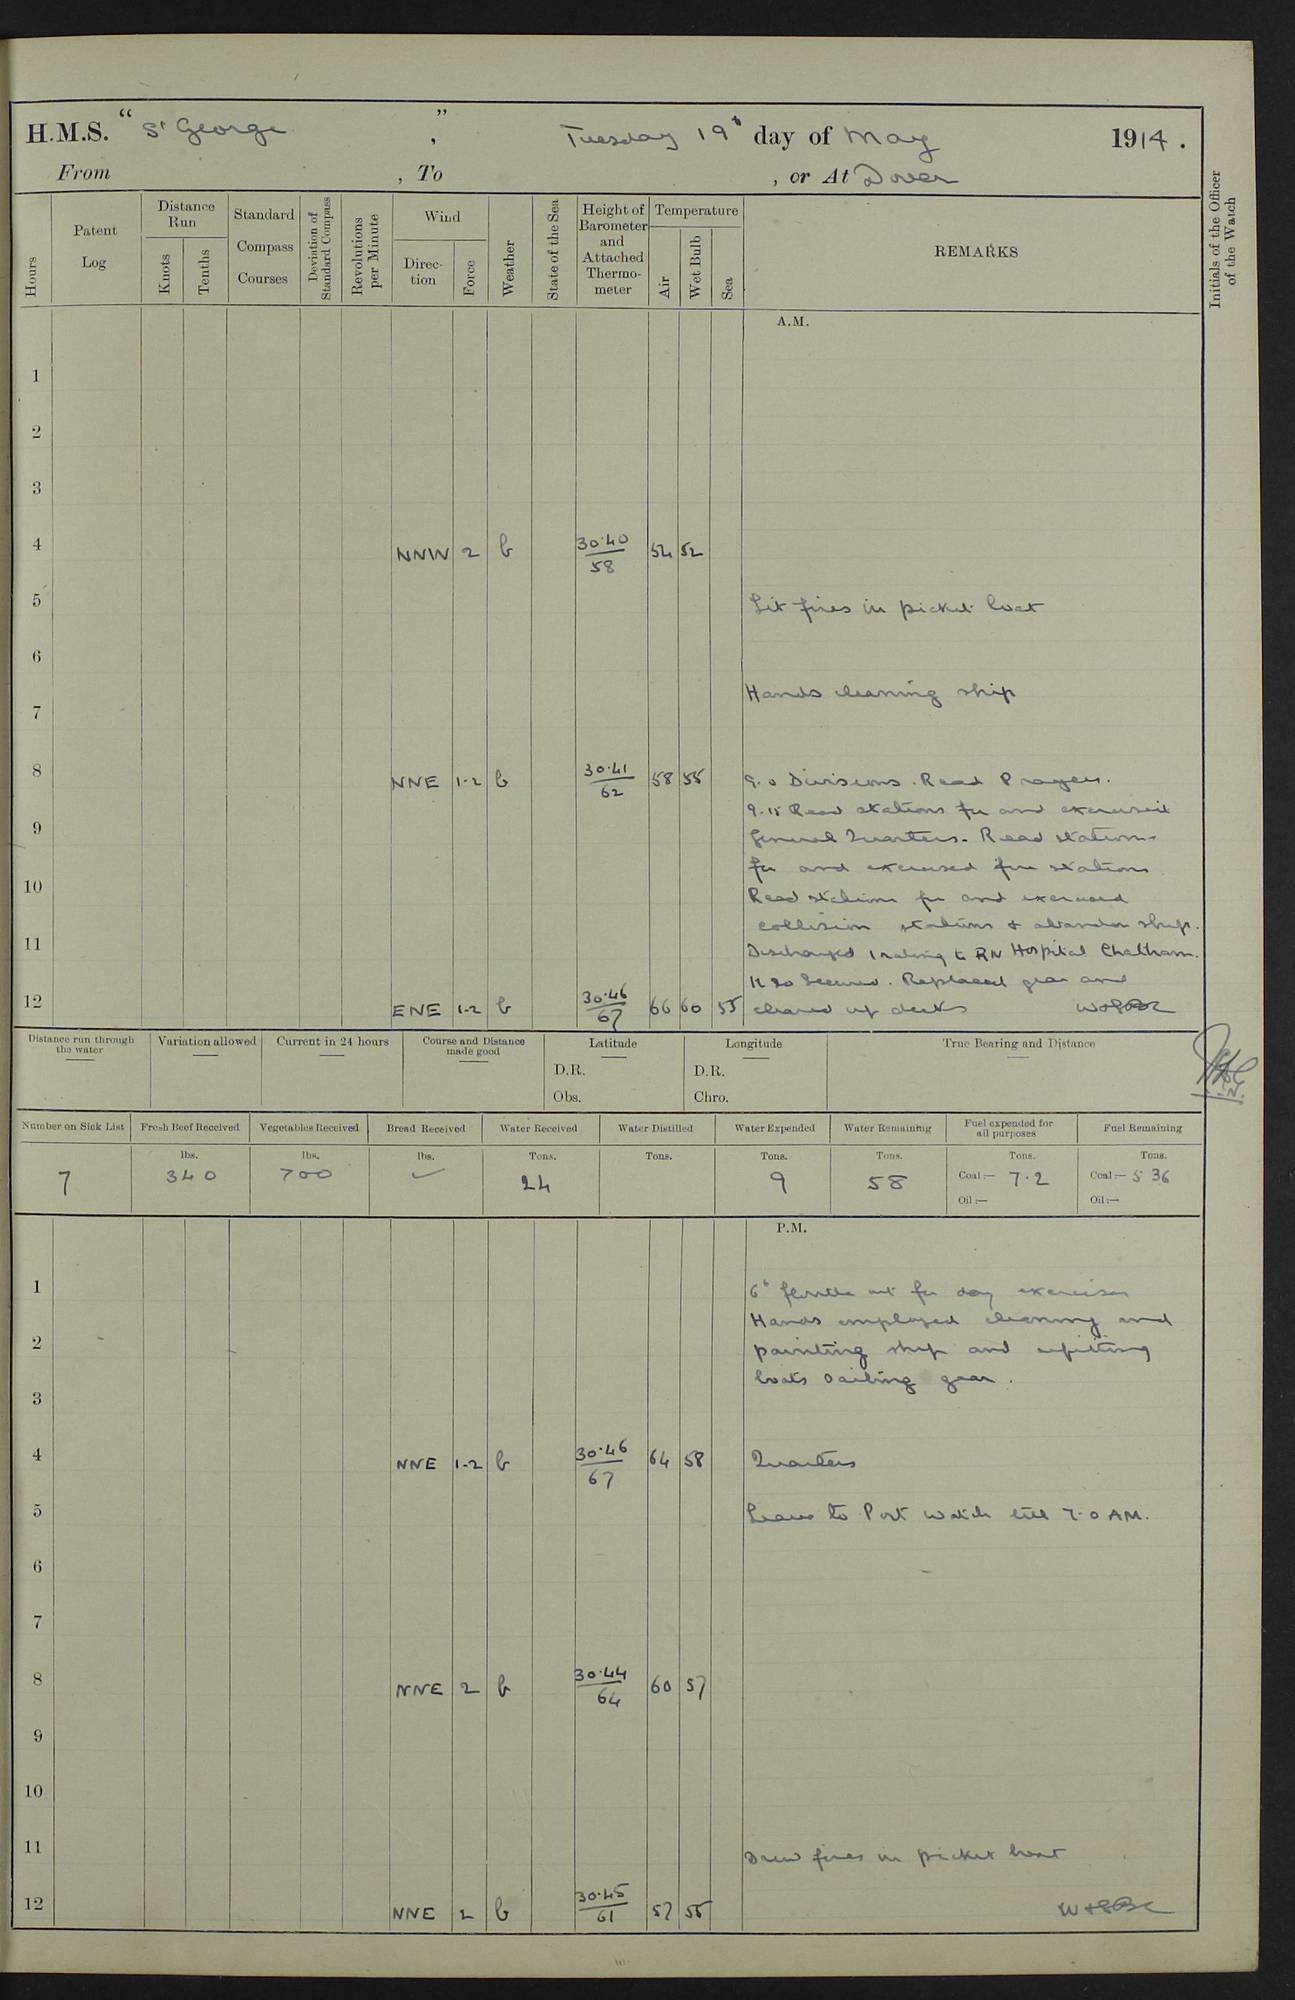 H.M.S. " St George " , Tuesday 19th day of May 1914.
From , To , or At Dover
Hours
Patent Log
Distance Run
Knots
Tenths
Standard Compass Courses
Deviation of Standard Compass
Revolutions per Minute
Wind
Direc-tion
Force
Weather
State of the Sea
Height of Barometer and Attached Thermo-meter
Temperature
Air
Wet Bulb
Sea
REMARKS
Initials of the Officer of the Watch
A.M.
1
2
3
4 NNW 2 b 30.40/58 54 52
5 Lit fires in picket boat
6
Hands cleaning ship
7
8 NNE 1-2 b 30.41/62 58 55 9.0 Divisions. Read Prayers.
9.15 Read stations for and exercised
9 General Quarters. Read stations
for and exercised fire stations
10 Read stations for and exercised
collision stations & abandon ship.
11 Discharged 1 rating to RN Hospital Chatham.
11 20 Secured. Replaced gear and
12 ENE 1-2 b 30.46/67 66 60 55 cleared up decks
Distance run through the water
Variation allowed
Current in 24 hours
Course and Distance made good
Latitude
D.R.
Obs.
Longitude
D.R.
Chro.
True Bearing and Distance
Number on Sick List
Fresh Beef Received
Vegetables Received
Bread Received
Water Received
Water Distilled
Water Expended
Water Remaining
Fuel expended for all purposes
Fuel Remaining
lbs. lbs. lbs. Tons. Tons. Tons. Tons. Tons. Tons.
7 340 700 ✓ 24 9 58 Coal:— 7.2 Coal:— 536
Oil:— Oil:—
P.M.
1 6" out for day exercises
Hands employed cleaning and
2 painting ship and refitting
boats sailing gear.
3
4 NNE 1-2 b 30.46/67 64 58 Quarters
5 Leave to Port watch till 7.0 AM.
6
7
8 NNE 2 b 30.44/64 60 57
9
10
11 Drew fires in picket boat
12 NNE 2 b 30.45/61 57 55